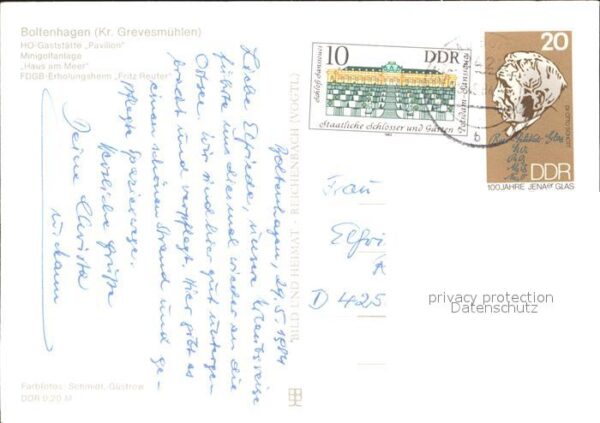 Boltenhagen (Kr. Grevesmühlen)
HO-Gaststätte „Pavillon"
Minigolfanlage
„Haus am Meer"
FDGB-Erholungsheim „Fritz Reuter"
Boltenhagen, 29.5.1984
Liebe Elfriede, unsere Urlaubsreise
führte uns diesmal wieder an die
Ostsee. Wir sind hier gut unterge-
bracht und verpflegt. Hier gibt es
einen schönen Strand und ge-
pflegte Spazierwege.
Herzliche Grüße
Deine Christa
u.
Farbfotos: Schmidt, Güstrow
DDR 0,20 M
BILD UND HEIMAT · REICHENBACH (VOGTL)
10 DDR
Schloß Sanssouci
Potsdam-Sanssouci
Staatliche Schlösser und Gärten
b
20
Dr. OTTO SCHOTT
DDR
100 JAHRE JENAer GLAS
Frau
Elfri
D 425
privacy protection
Datenschutz